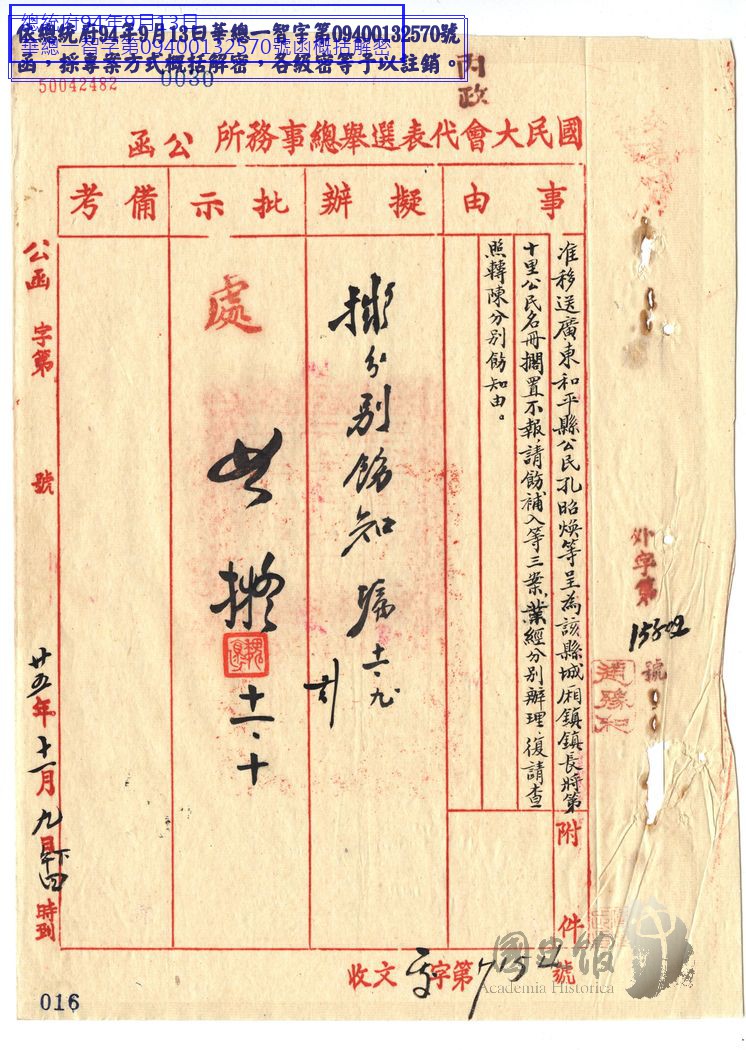 總統府94年9月13日
華總一智字第09400132570號函概括解密
依總統府94年9月13日華總一智字第09400132570號
函，採專案方式概括解密，各級密等予以註銷。
50042482
0030
內政
國民大會代表選舉總事務所公函
事由
擬辦
批示
備考
准移送廣東和平縣公民孔昭煥等呈為該縣城廂鎮鎮長將第
十里公民名冊擱置不報，請飭補入等三案，業經分別辦理，復請查
照轉陳分別飭知由。
附件
擬分別飭知
十一、九
處
如擬
十一、十
公函 字第 號
廿五年十一月九日下午四時到
外字第
號
收文 字第 號
國史館
Academia Historica
016